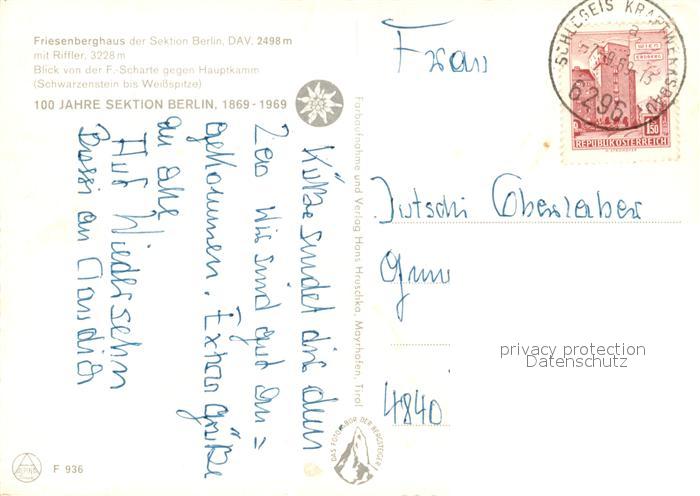 Friesenberghaus der Sektion Berlin, DAV, 2498 m
mit Riffler, 3228 m
Blick von der F.-Scharte gegen Hauptkamm
(Schwarzenstein bis Weißspitze)
100 JAHRE SEKTION BERLIN, 1869-1969
sendet dir dein
Wir sind gut an=
gekommen. Extra Grüße
an alle
Auf Wiedersehn
Bussi an Claudia
F 936
Farbaufnahme und Verlag Hans Hruschka, Mayrhofen, Tirol
DAS FOTO ABOR DER BERGSTEIGER
Frau
4840
SCHLEGEIS KRAFTWERKSBAU
6296
WIEN
ERDBERG
1.50
REPUBLIK ÖSTERREICH
privacy protection
Datenschutz